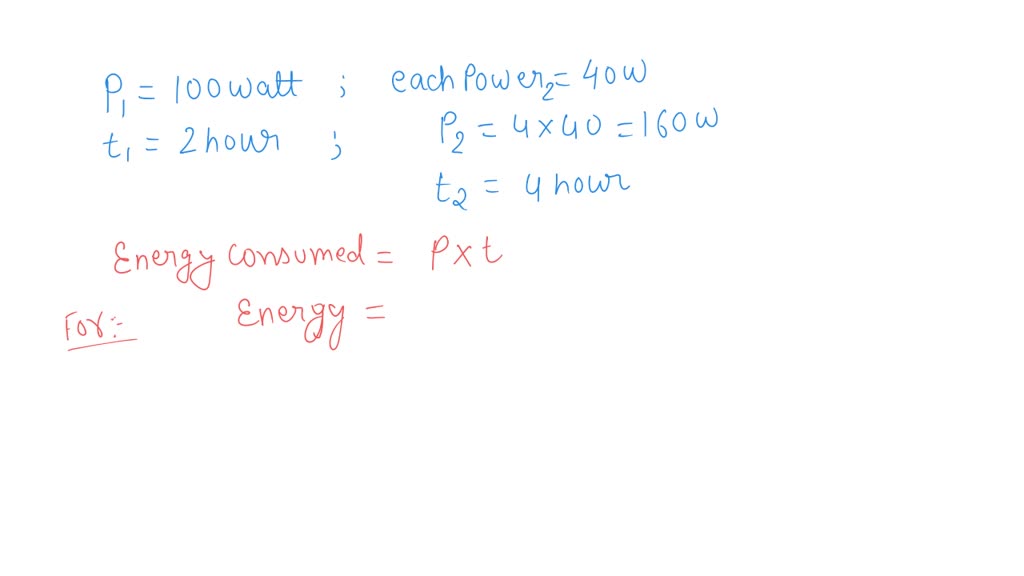 P₁ = 100watt ; each Power₂ = 40W
t₁ = 2 hour ; P₂ = 4 × 40 = 160W
t₂ = 4 hour
Energy consumed = P × t
For:- Energy =